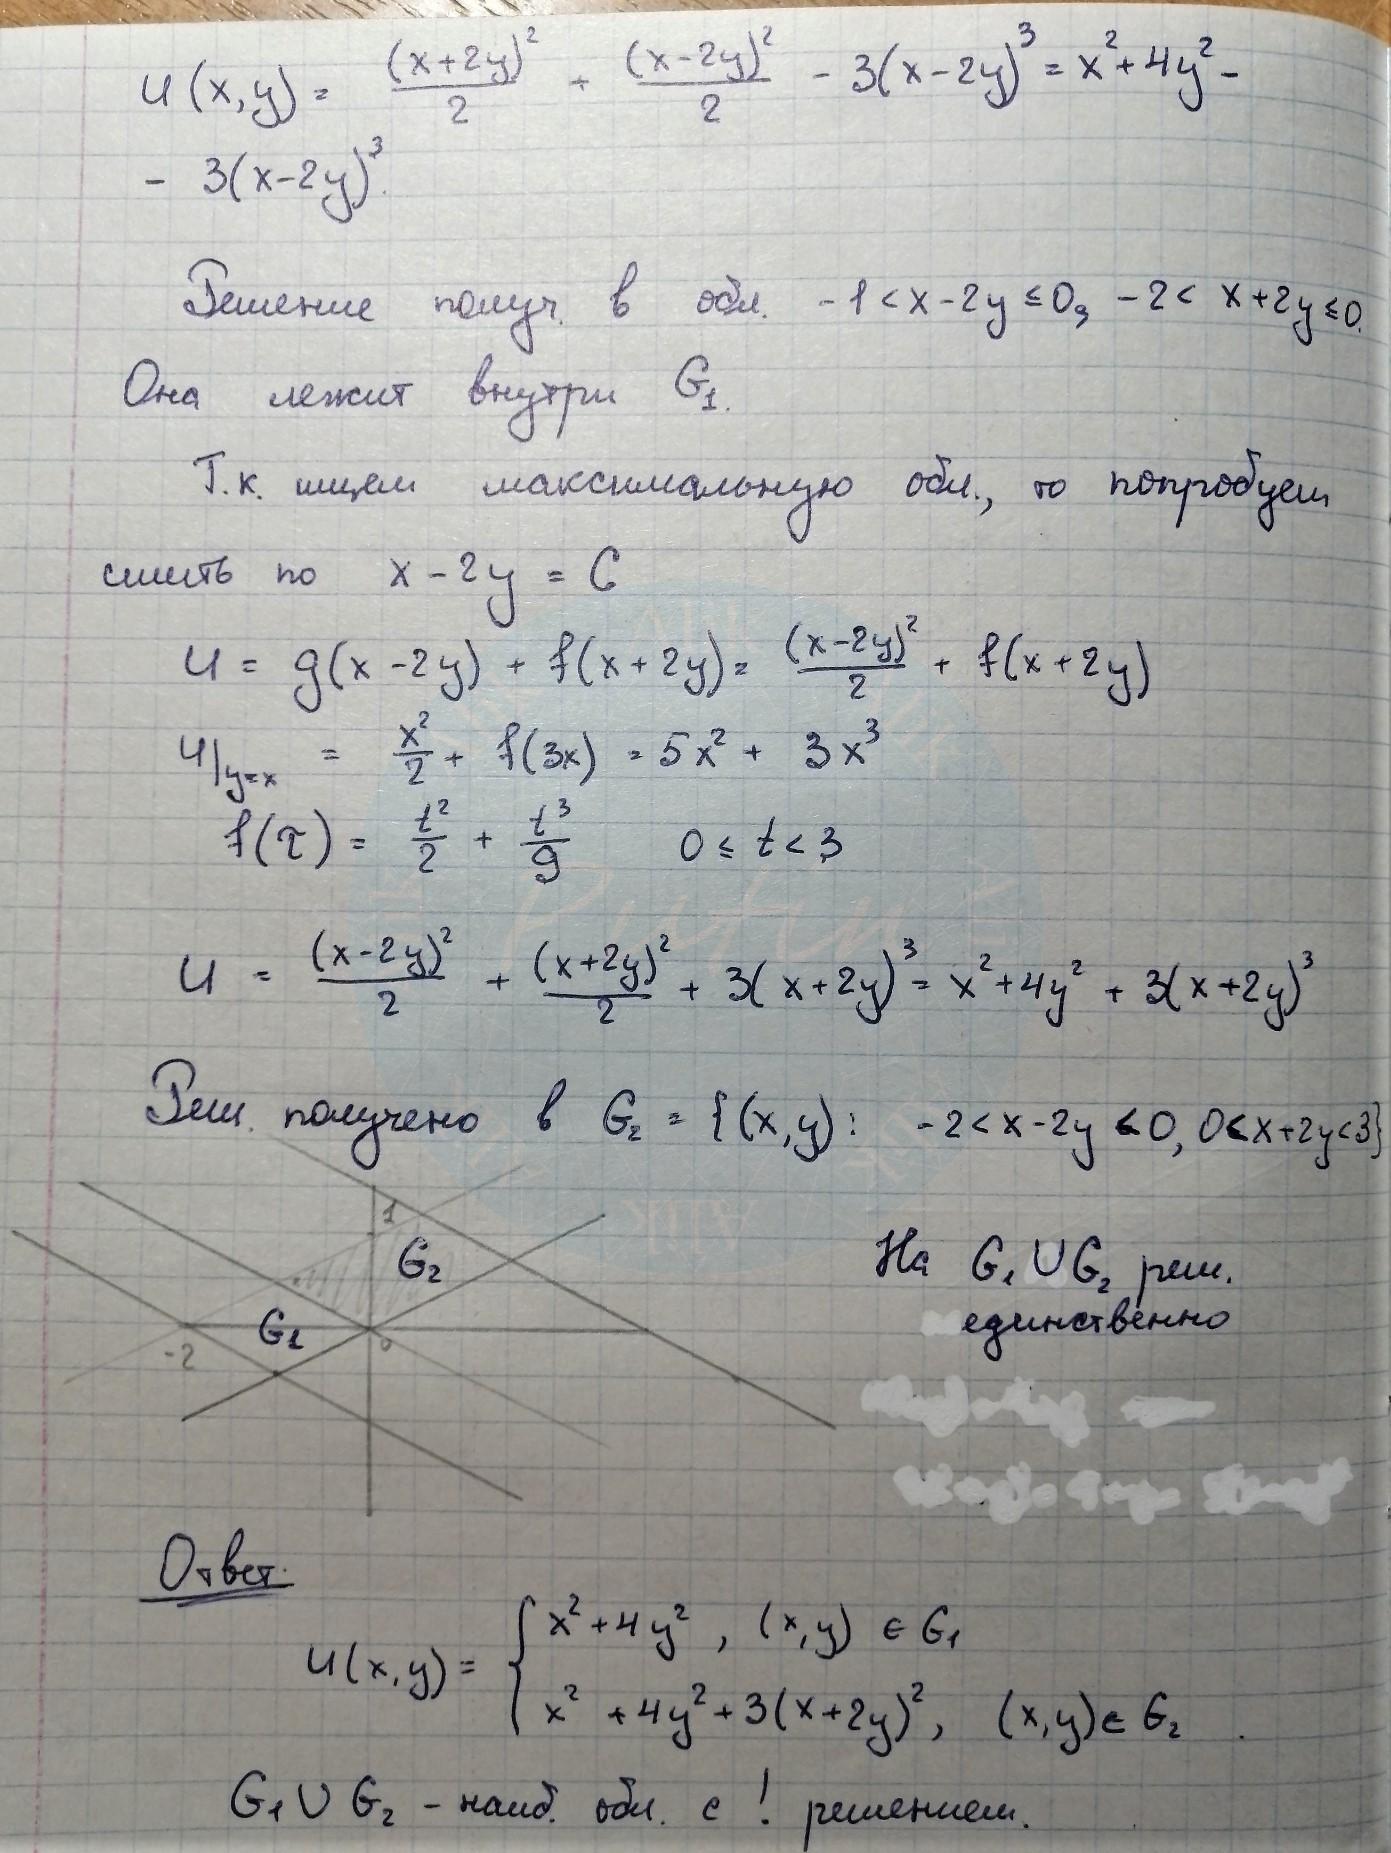 u(x,y) = (x+2y)²/2 + (x-2y)²/2 - 3(x-2y)³ = x²+4y² -
- 3(x-2y)³.
Решение получ. в обл. -1<x-2y≤0, -2< x+2y≤0.
Она лежит внутри G₁.
Т.к. ищем максимальную обл., то попробуем
сшить по x-2y = C
u = g(x-2y) + f(x+2y) = (x-2y)²/2 + f(x+2y)
u|y=x = x²/2 + f(3x) = 5x² + 3x³
f(τ) = t²/2 + t³/9 0 ≤ t < 3
u = (x-2y)²/2 + (x+2y)²/2 + 3(x+2y)³ = x²+4y² + 3(x+2y)³
Реш. получено в G₂ = {(x,y): -2<x-2y<0, 0<x+2y<3}
1
G₂
G₁
-2
0
На G₁UG₂ реш.
единственно
Ответ.
u(x,y) = { x²+4y², (x,y) ∈ G₁
x² +4y²+3(x+2y)², (x,y)∈ G₂.
G₁ U G₂ - наиб. обл. с ! решением.